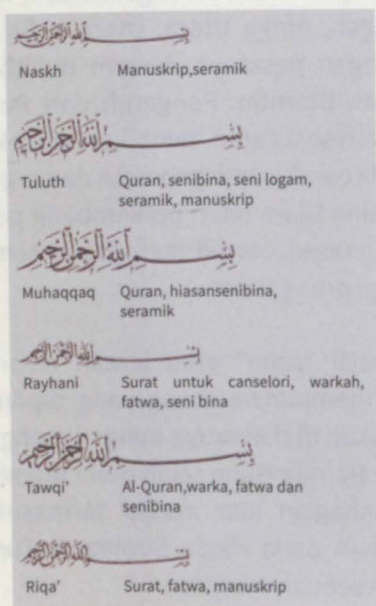 بسم الله الرحمن الرحيم
Naskh Manuskrip,seramik
بسم الله الرحمن الرحيم
Tuluth Quran, senibina, seni logam,
seramik, manuskrip
بسم الله الرحمن الرحيم
Muhaqqaq Quran, hiasansenibina,
seramik
بسم الله الرحمن الرحيم
Rayhani Surat untuk canselori, warkah,
fatwa, seni bina
بسم الله الرحمن الرحيم
Tawqi' Al-Quran,warka, fatwa dan
senibina
بسم الله الرحمن الرحيم
Riqa' Surat, fatwa, manuskrip